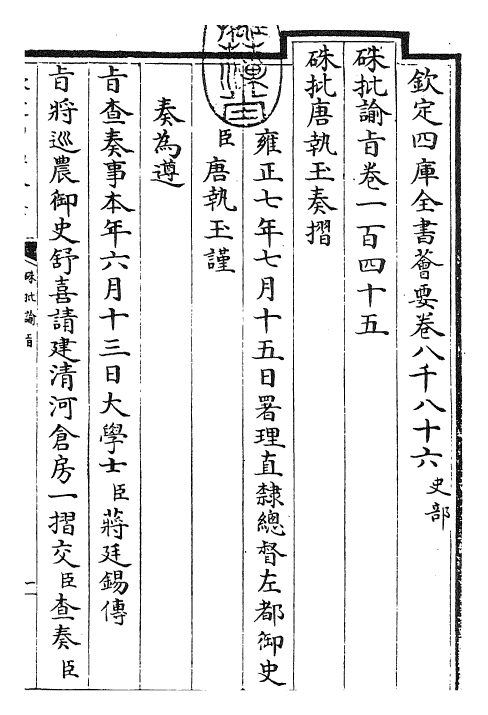 欽定四庫全書薈要卷八千八十六 史部
硃批諭旨卷一百四十五
硃批唐執玉奏摺
雍正七年七月十五日署理直隸總督左都御史
臣唐執玉謹
奏為遵
旨查奏事本年六月十三日大學士臣蔣廷錫傳
旨將巡農御史舒喜請建清河倉房一摺交臣查奏臣
硃批諭旨
一